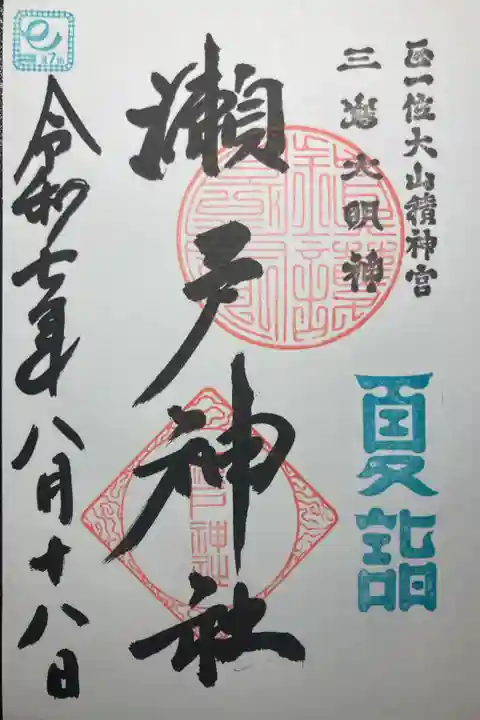 正一位大山積神宮
三嶋大明神
夏詣
瀬戸神社
令和七年八月十八日